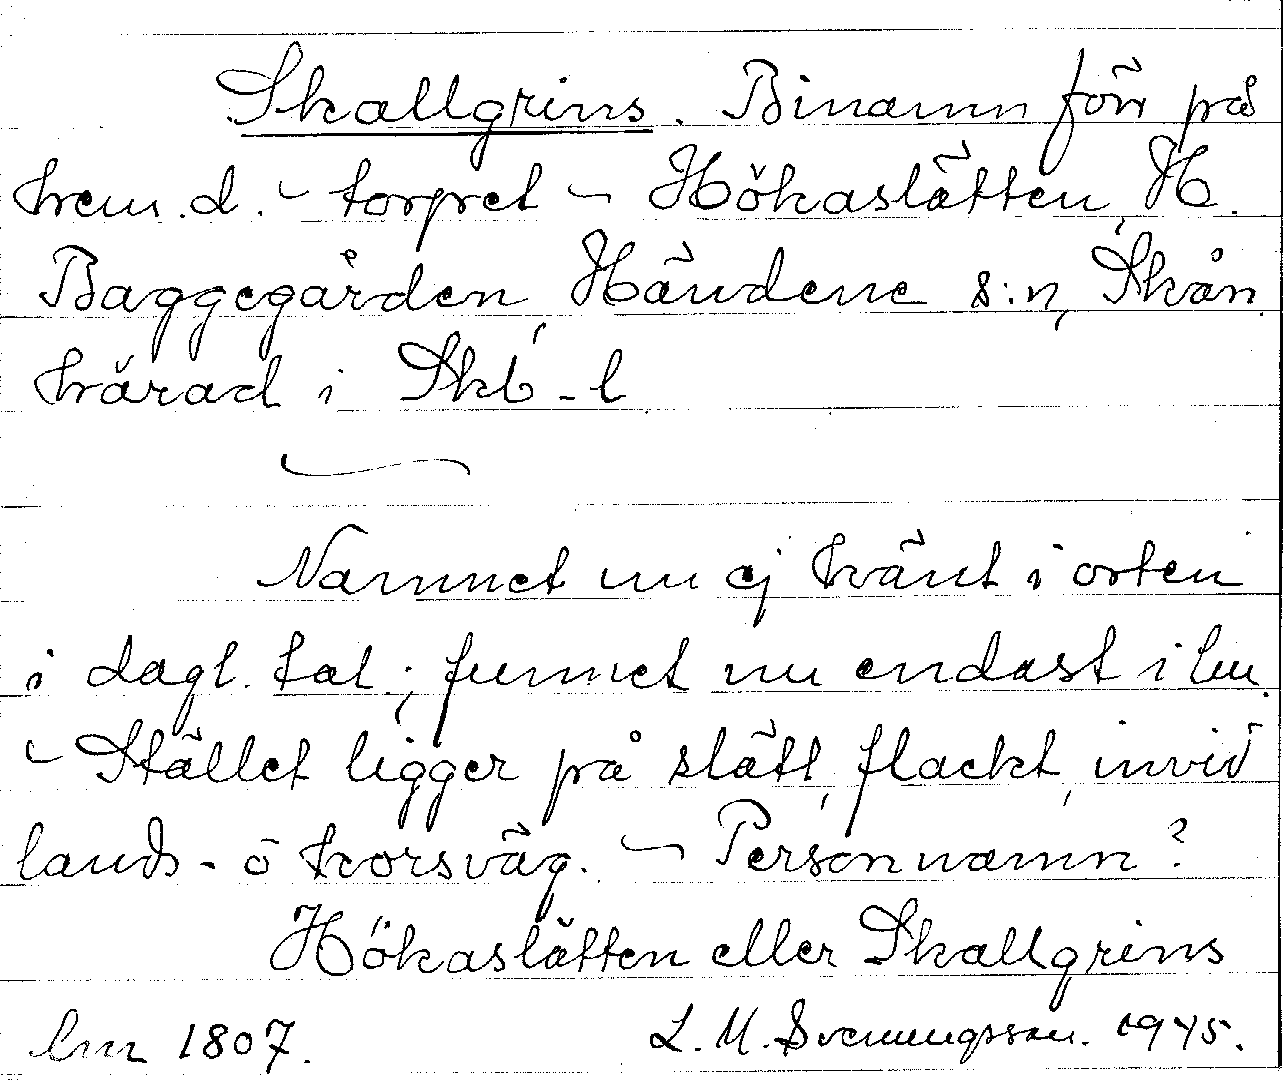 Skallgrins. Binamn förr på
hem.d. - torpet - Hökaslätten, H.
Baggegården, Händene s:n, Skån.
härad i Skb-l
Namnet nu ej känt i orten
i dagl. tal; funnet nu endast i lm.
- Stället ligger på slätt, flackt, invid
lands- o korsväg. - Personnamn?
Hökaslätten eller Skallgrins
lm 1807. L. M. Svenungsson. 1945.